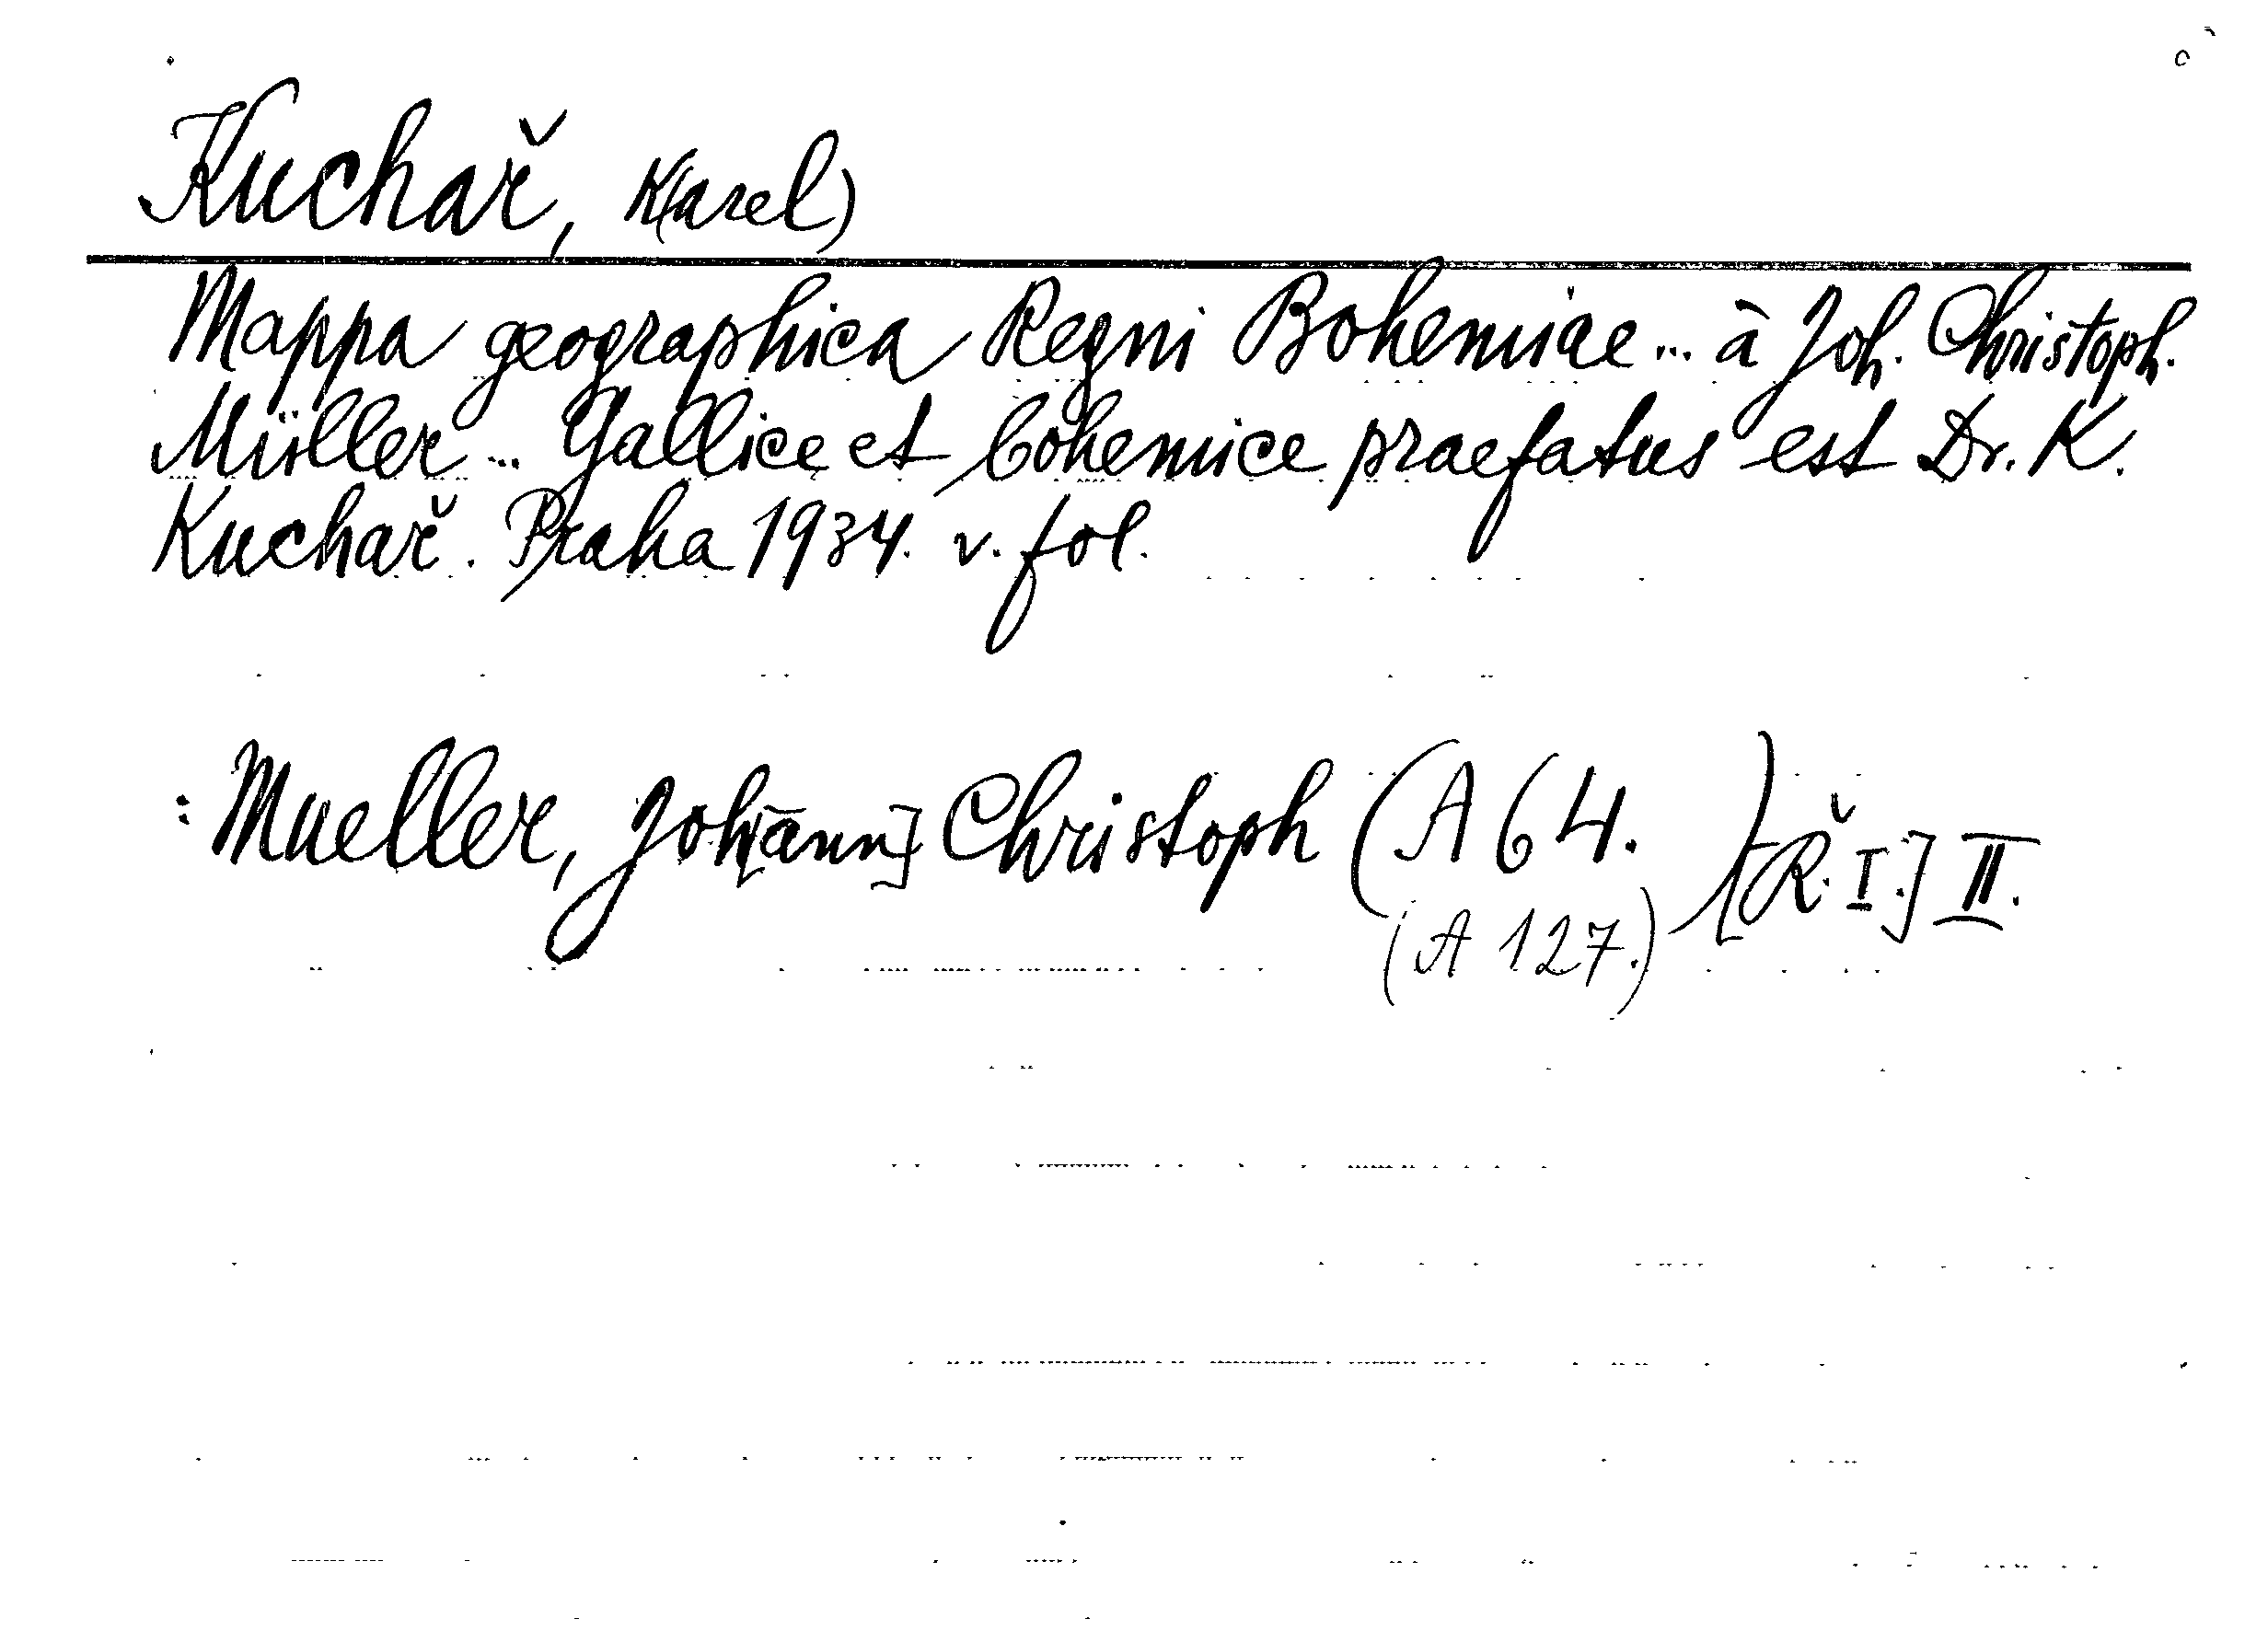 Kuchař, K(arel)
Mappa geographica Regni Bohemiae... à Joh. Christoph.
Müller... Gallice et bohemice praefatus est Dr. K.
Kuchař. Praha 1934. v. fol.
: Mueller, Joh[ann] Christoph (A 64.) [Ř. I.] II.
(A 127.)